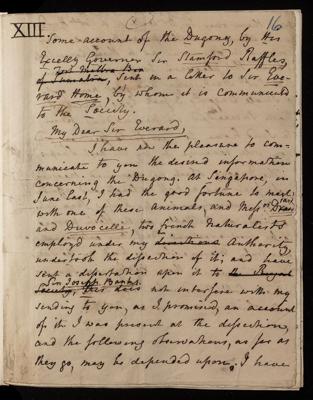 XIII
16
Some account of the Dugong, by His
Excelly Governor Sir Stamford Raffles,
of Sumatra, Sent in a Letter to Sir Eve-
rard Home, by whom it is communicated
to the Society.
My Dear Sir Everard,
I have now the pleasure to com-
municate to you the desired information
concerning the Dugong. At Singapore, in
June last, I had the good fortune to meet
with one of these animals, and Messrs Diard
and Duvocelle, two french Naturalists
employd under my directions Authority,
undertook the dissection of it; and have
sent a dissertation upon it to the Royal
Sir Joseph Banks.
Society, this does not interfere with my
sending to you, as I promised, an account
of it. I was present at the dissection,
and the following observations, as far as
they go, may be depended upon. I have